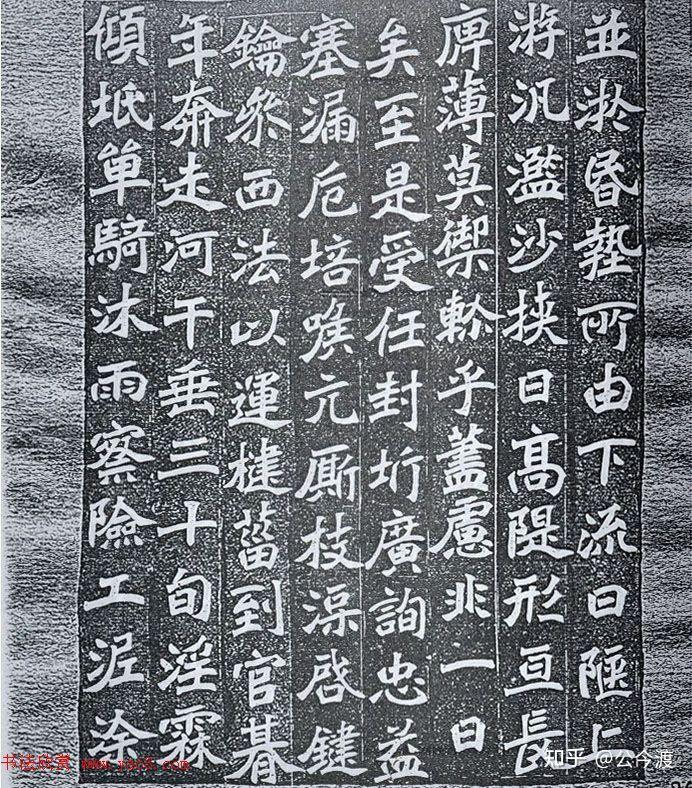 並淤昏墊所由下流日陿上
游汎濫沙挾日高隄形亘長
庳薄莫禦軫乎藎慮非一日
矣至是受任封圻廣詢忠益
塞漏卮培喉亢厮枝渠啓鍵
鑰參西法以運楗菑到官朞
年奔走河干垂三十旬淫霖
傾坻單騎沐雨察險工泥涂
知乎 @公今渡
书法欣赏 www.yac8.com